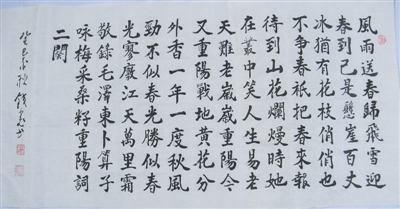 風雨送春歸飛雪迎
春到已是懸崖百丈
冰猶有花枝俏俏也
不爭春祇把春來報
待到山花爛熳時她
在叢中笑人生易老
天難老歲歲重陽今
又重陽戰地黃花分
外香一年一度秋風
勁不似春光勝似春
光寥廓江天萬里霜
敬錄毛澤東卜算子
咏梅采桑籽重陽詞
二闋
癸巳 秋 錢